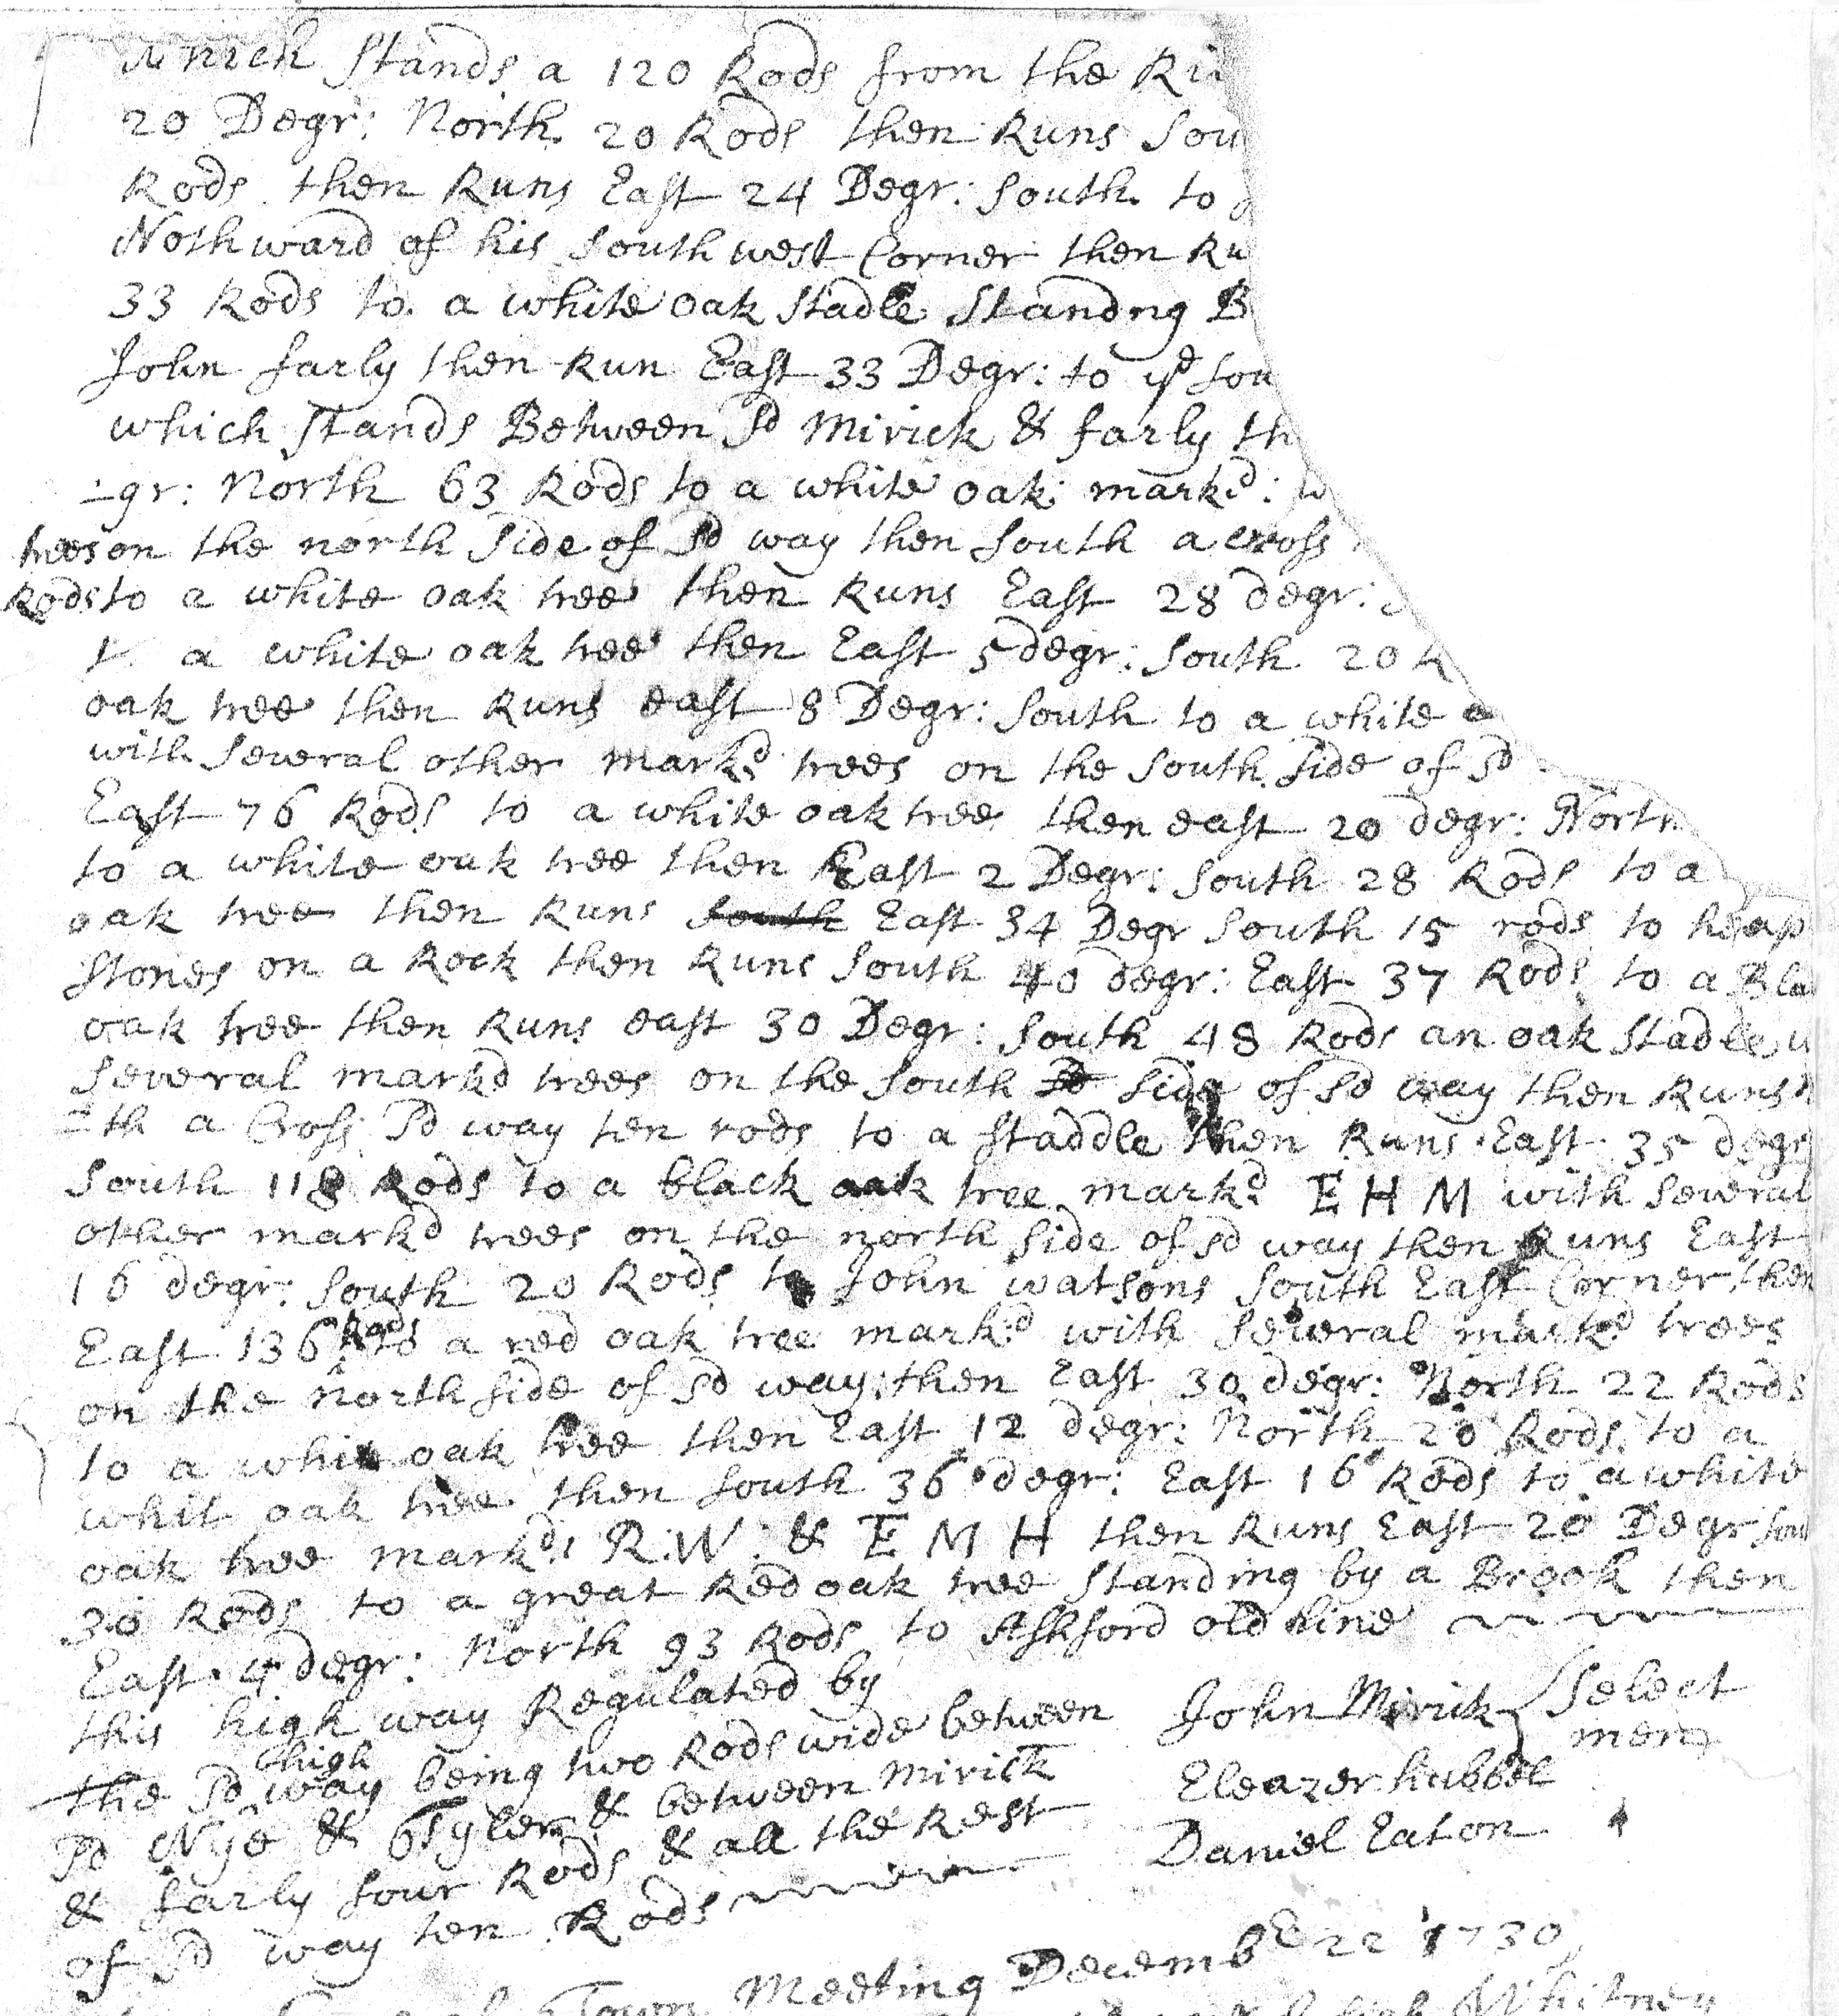 which stands a 120 Rods from the Ri
20 Degr: North 20 Rods then Runs Sou
Rods then Runs East 24 Degr: South to
Nothward of his South west Corner then Ru
33 Rods to a white oak stadle Standng B
John farly then Run East 33 Degr: to ye Sou
which stands Between Sd Mirick & farly th
gr: North 63 Rods to a white oak markd:
trees on the north Side of Sd way then South a cross
Rods to a white oak tree then Runs East 28 degr:
a white oak tree then East 5 degr: South 20 R
oak tree then Runs east 8 Degr: South to a white o
with Several other markd trees on the South Side of Sd
East 76 Rods to a white oak tree then east 20 degr: North
to a white oak tree then East 2 Degr: South 28 Rods to a
oak tree then Runs South East 34 Degr South 15 rods to heap
Stones on a Rock then Runs South 40 degr: East 37 Rods to a Bla
oak tree then Runs east 30 Degr: South 48 Rods an oak Stadle w
Several markd trees on the South Side of Sd way then Runs
th a Cross Sd way ten rods to a staddle then Runs East 35 degr
South 118 Rods to a black oak tree markd E H M with Several
other markd trees on the north Side of Sd way then Runs East
16 degr: South 20 Rods to John watsons South East Corner then
East 136 Rods to a red oak tree markd with Several markd trees
on the north side of Sd way: then East 30 degr: North 22 Rods
to a whit oak tree then East 12 degr: North 20 Rods to a
whit oak tree then South 36 degr: East 16 Rods to a white
oak tree markd: R: W: & E M H then Runs East 20 Degr Sou
30 Rods to a great Red oak tree standing by a Brook then
East 4 degr: North 93 Rods to Ashford old line
this high way Regulated by
the Sd high way being two Rods wide between
Sd Nye & Tyler & between Mirick
& farly four Rods & all the Rest
of Sd way ten Rods
John Mirick Select men
Eleazer hubbel
Daniel Eaton
Town Meeting Decembe 22 1730
Whitney